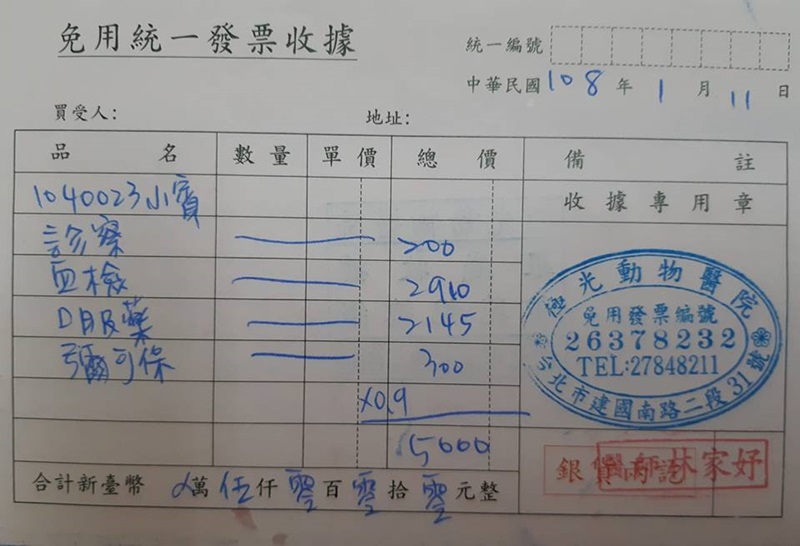 免用統一發票收據
統一編號
中華民國 108 年 1 月 11 日
買受人:
地址:
品名 數量 單價 總價 備註
收據專用章
1040023小賓
診察 200
血檢 2910
口服藥 2145
彌可保 300
x0.9
5000
合計新臺幣 萬伍仟零百零拾零元整
極光動物醫院
免用發票編號
26378232
TEL:27848211
台北市建國南路二段31號
銀貨兩訖
林家好